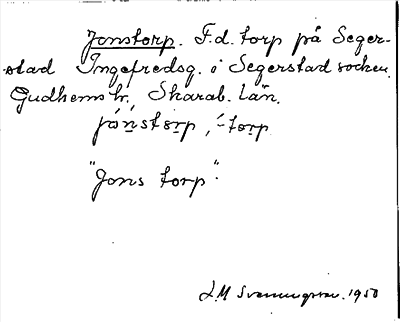 Jonstorp. F.d. torp på Seger-
stad Ingefredsg. i Segerstad socken
Gudhems hr, Skarab. län.
jónstorp, ´-torp
"Jons torp".
L.M Svenungsson. 1950